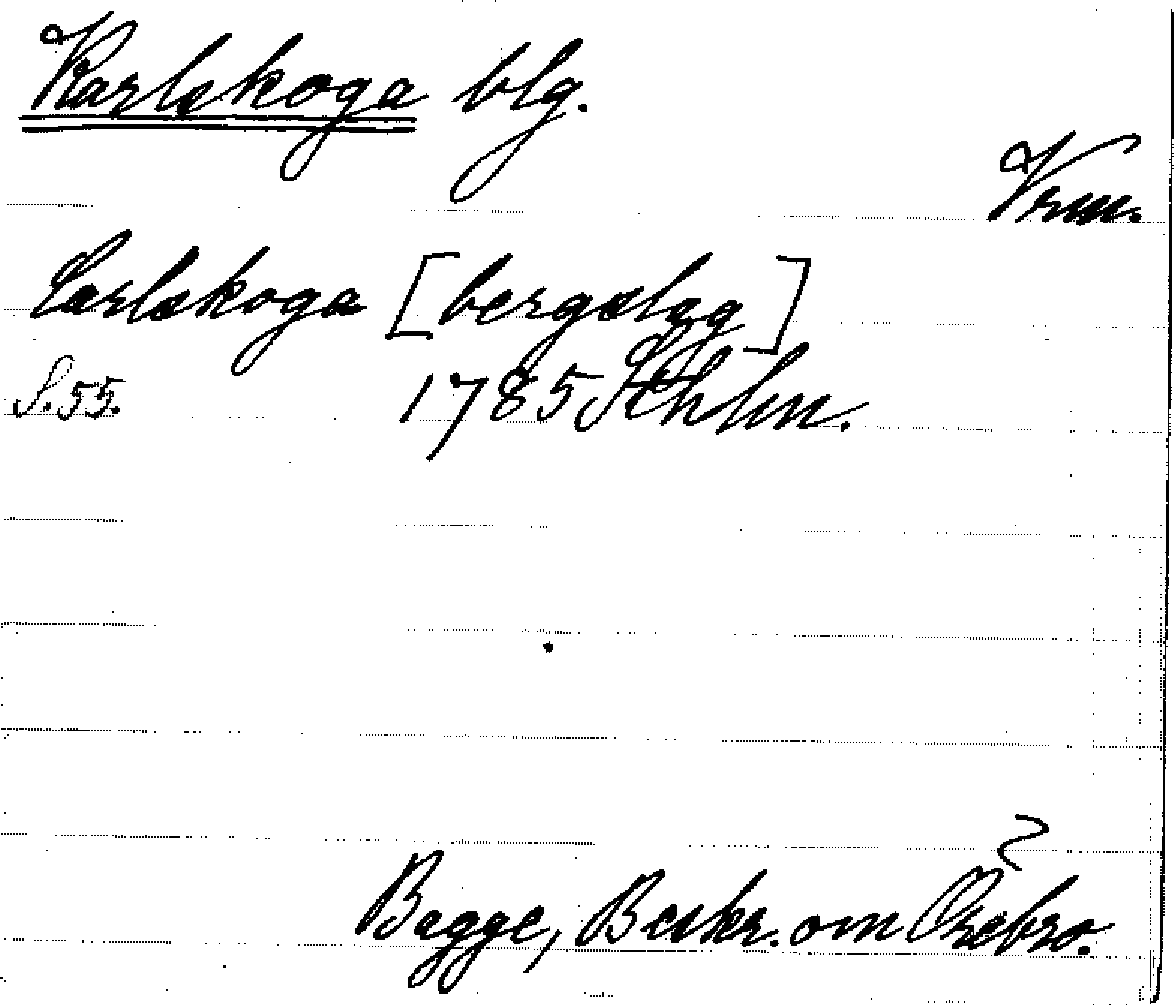 Karlskoga blg.
Vrm.
Carlskoga [bergslag]
S. 55. 1785 Sthlm.
Bagge, Beskr. om Örebro.